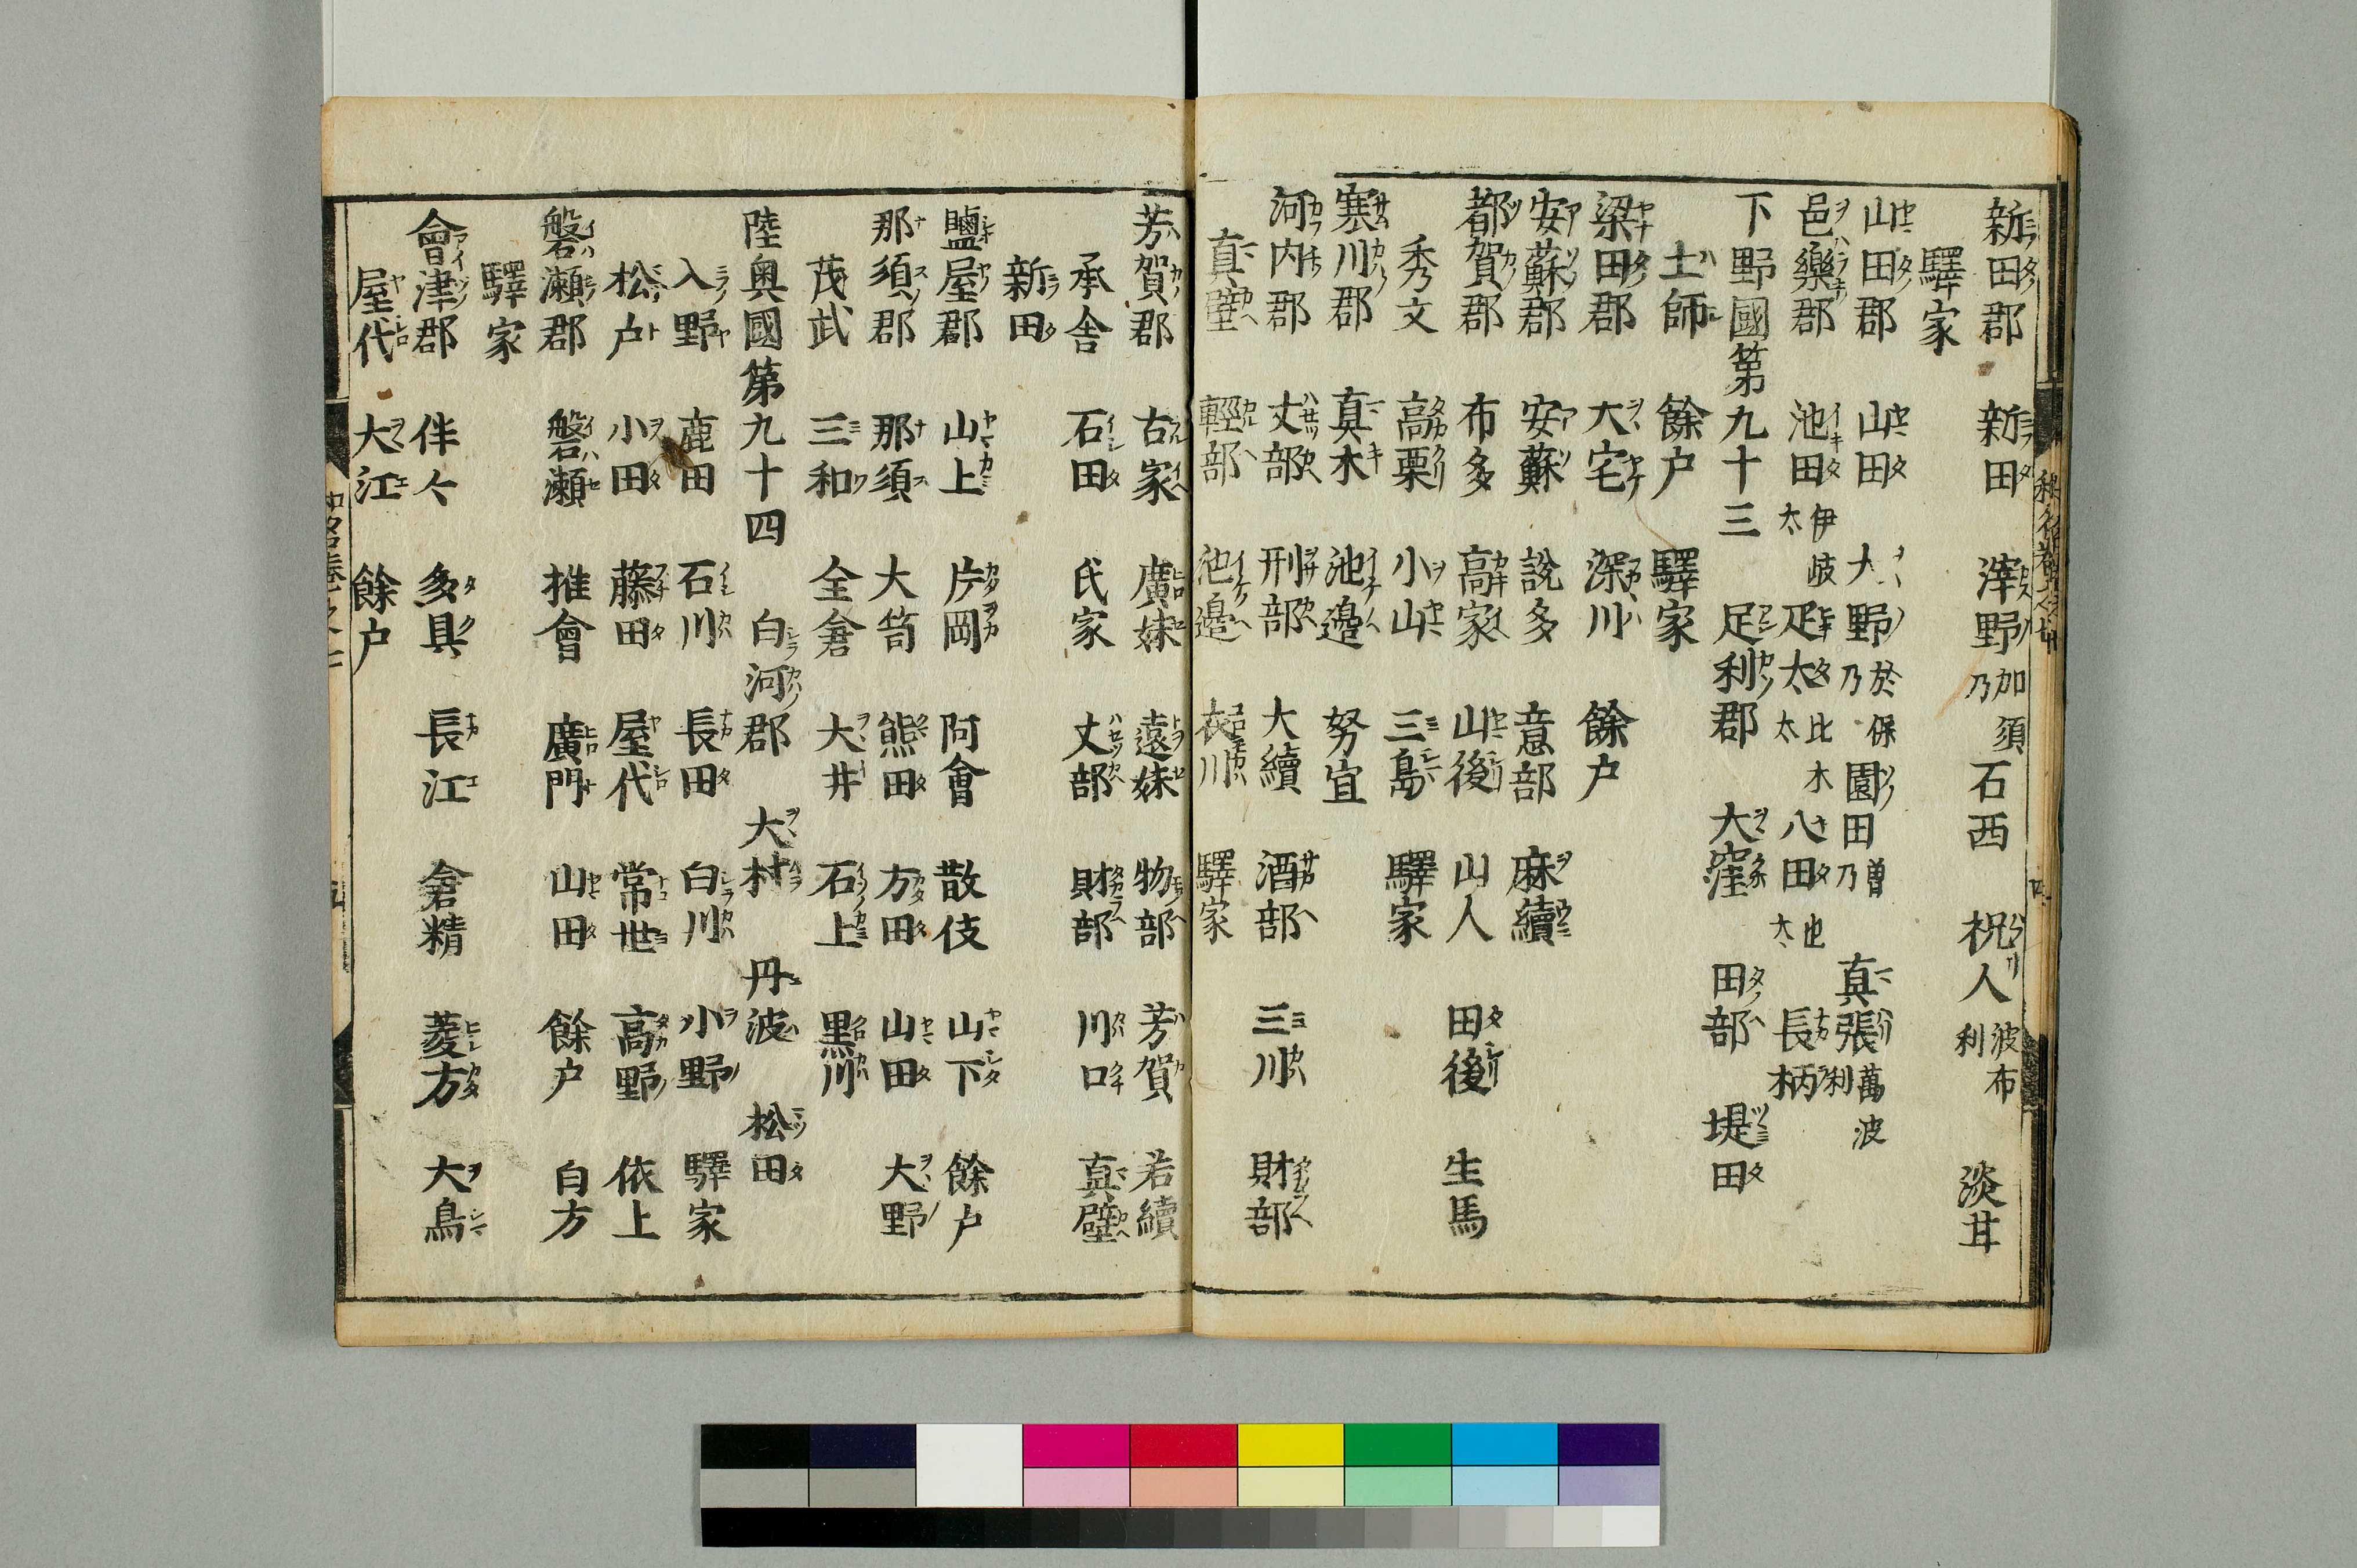 新田郡 新田 滓野 加須乃 石西 祝人 波布利 淡甘
驛家
山田郡 山田 大野 於保乃 園田 曽乃 真張 萬波利
邑樂郡 池田 伊岐太 疋太 比木太 八田 也太 長柄
下野國第九十三 足利郡 大窪 田部 堤田
土師 餘戸 驛家
梁田郡 大宅 深川 餘戸
安蘇郡 安蘇 説多 意部 麻續
都賀郡 布多 高家 山後 山人 田後 生馬
秀文 高栗 小山 三島 驛家
寒川郡 真木 池邉 努宜
河内郡 丈部 刑部 大續 酒部 三川 財部
真壁 輕部 池邉 衣川 驛家
芳賀郡 古家 廣妹 遠妹 物部 芳賀 若續
承舎 石田 氏家 丈部 財部 川口 真壁
新田
鹽屋郡 山上 片岡 阿會 散伎 山下 餘戸
那須郡 那須 大笥 熊田 方田 山田 大野
茂武 三和 全倉 大井 石上 黒川
陸奥國第九十四 白河郡 大村 丹波 松田
入野 鹿田 石川 長田 白川 小野 驛家
松戸 小田 藤田 屋代 常世 高野 依上
磐瀬郡 磐瀬 推會 廣門 山田 餘戸 白方
驛家
會津郡 伴々 多具 長江 倉精 菱方 大島
屋代 大江 餘戸